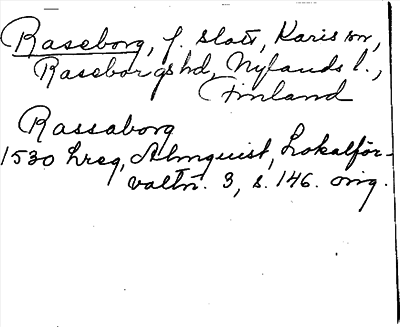 Raseborg, f. slott, Karis sn,
Raseborgs hd, Nylands l.,
Finland
Rassaborg
1530 hreg, Almquist, Lokalför-
valtn. 3, s. 146. orig.